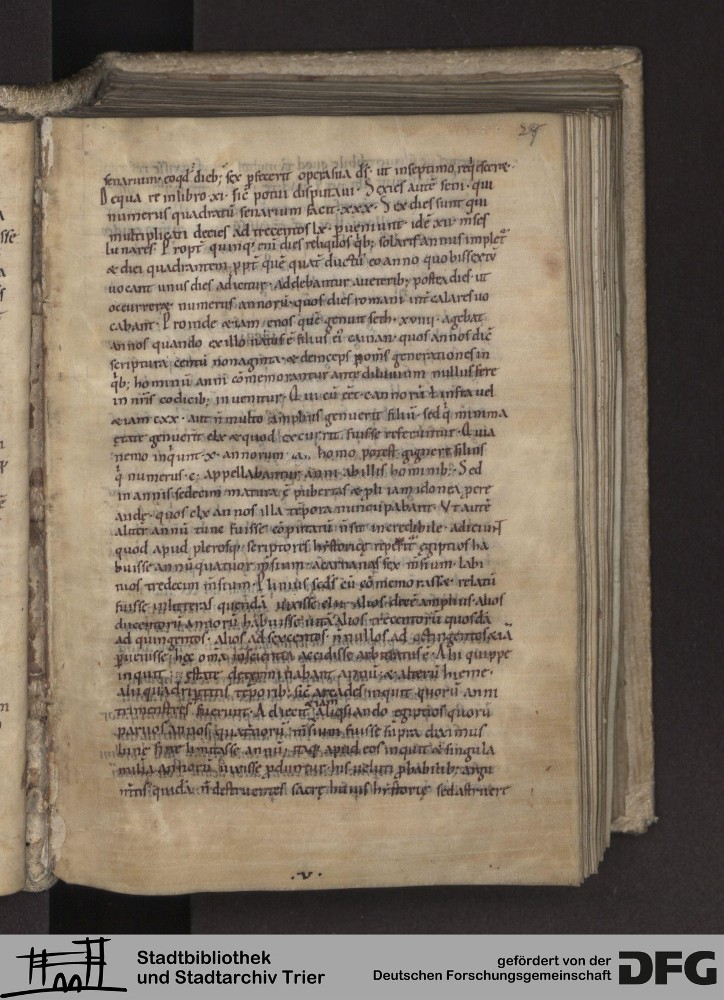 29
senarium. eo qd dieb; sex pfecerit opera sua ds. ut in septimo req̇esceret.
De qua re in libro .xi. sic̄ potui disputaui. Sexies autē seni. qui
numerus quadratū senarium facit .xxx. Sex dies sunt qui
multiplicati decies ad trecentos lx. pueniunt idē xii. m̄ses
lunares. Propt̄ quinq; enī dies reliquos q̇b; solaris annus implet̄
& diei quadrantem ppt̄ quē quat̄ ductū eo anno quo bissextū
uocant unus dies adicitur. addebantur a ueterib; postea dies ut
occurrer& numerus annorū. quos dies romani int̄calares uo
cabant. Proinde &iam enos quē genuit seth. xviiii. agebat
annos quando ex illo natus ē filius ei cainan. quos annos dic̄
scriptura centū nonaginta. & deinceps p om̄s generationes in
q̇b; hominū anni cōmemorantur ante diluuium nullus fere
in nr̄is codicib; inuenitur. Qui cū cēt. annorū ł infra uel
&iam cxx. aut n̄ multo amplius genuerit filiū. sed q̇ minima
etate genuerit clx & quod excurrit fuisse referuntur. Quia
nemo inquiunt .x. annorum homo potest gignere filios
q̇ numerus .c. appellabantur anni ab illis hominib;. Sed
in annis sedecim matura ē pubertas & pli iam idonea pcre
andę. quos clx annos illa tēpora nuncupabant. Vt autē
aliter annū tunc fuisse cōputatū n̄ sit incredibile. adiciunt
quod apud plerosq; scriptores hystorię reperit̄ egiptios ha
buisse annū quatuor m̄sium. acarnanas sex m̄sium. labi
nios tredecim m̄sium. Plinius scds cū cōmemorass& relatū
fuisse in litteras quendā uixisse clii. Alios decē amplius. alios
ducentorū annorū habuisse uitā. Alios trecentorū. quosdā
ad quingentos. alios ad sexcentos. n̄nullos ad octingentos &iā
puenisse hęc om̄a inscientia accidisse arbitratus ē. Alii quippe
inquit estate determinabant annū. & alterū hieme.
alii quadripertitis tēporib; sic̄ arcades inquit quorū anni
trimenstres fuerunt. Adiecit &iam aliq̇ando egiptios quorū
paruos annos quat̄norū m̄sium fuisse supra diximus
lunę fine limitasse annū. itaq; apud eos inquit & singula
milia annorū uixisse pduntur. his uelut pbabilib; argu
m̄tis quidā n̄ destruentes sacrę huius hystorię sed astruere
.v.
Stadtbibliothek
und Stadtarchiv Trier
gefördert von der
Deutschen Forschungsgemeinschaft
DFG